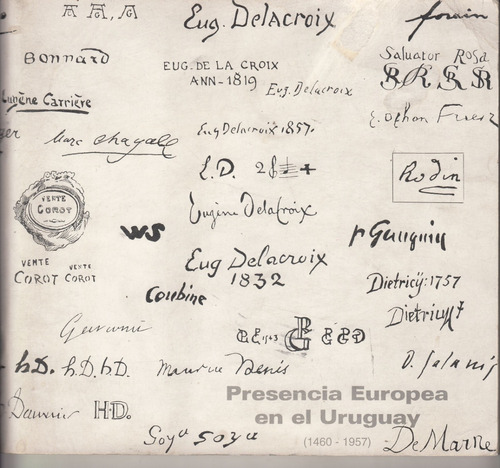 Eug. Delacroix
forain
Bonnard
EUG. DE LA CROIX
ANN-1819
Eug. Delacroix
Salvator Rosa
SR SR SR SR
Eugène Carrière
E. Othon Friesz
Marc Chagall
Eug Delacroix 1857.
E.D.
Rodin
VENTE
COROT
Eugène Delacroix
WS
P Gauguin
VENTE
COROT
VENTE
COROT
Eug Delacroix
1832
Dietricÿ:1757
Courbine
Gavarni
h.D. h.D. h.D.
Maurice Denis
Daumier
H.D.
Goya Goya
De Marne
Presencia Europea
en el Uruguay
(1460 - 1957)